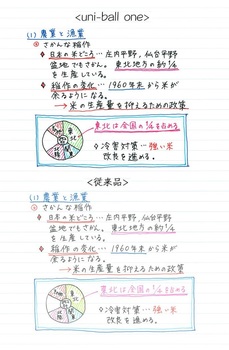 <uni-ball one>
(1) 農業と漁業
◎ さかんな稲作
◆ 日本の米どころ… 庄内平野, 仙台平野
盆地でもさかん。東北地方の約1/4
を生産している。
◆ 稲作の変化… 1960年末から米が
余るようになる。
→ 米の生産量を抑えるための政策
東北は全国の1/4を占める
◇ 冷害対策…強い米
改良を進める。
<従来品>
(1) 農業と漁業
◎ さかんな稲作
◆ 日本の米どころ… 庄内平野, 仙台平野
盆地でもさかん。東北地方の約1/4
を生産している。
◆ 稲作の変化… 1960年末から米が
余るようになる。
→ 米の生産量を抑えるための政策
東北は全国の1/4を占める
◇ 冷害対策…強い米
改良を進める。